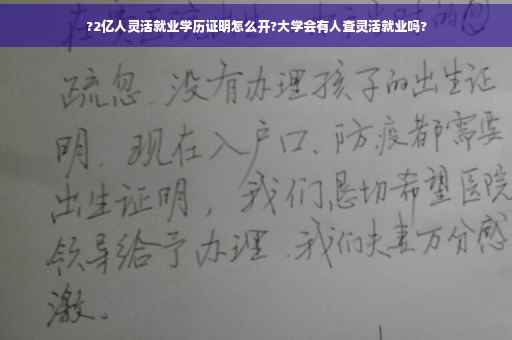 ?2亿人灵活就业学历证明怎么开?大学会有人查灵活就业吗?
疏忽.没有办理孩子的出生证
明.现在入户口、防疫都需要
出生证明，我们恳切希望医院
领导给予办理.我们夫妻万分感
激。